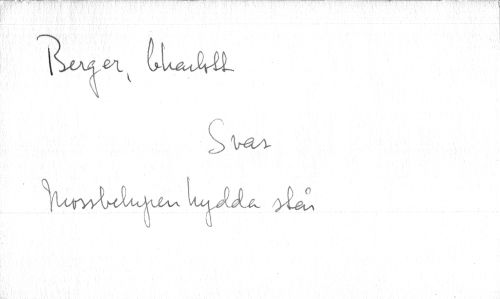 Berger, Charlott
Svar
Mossbelupen hydda står